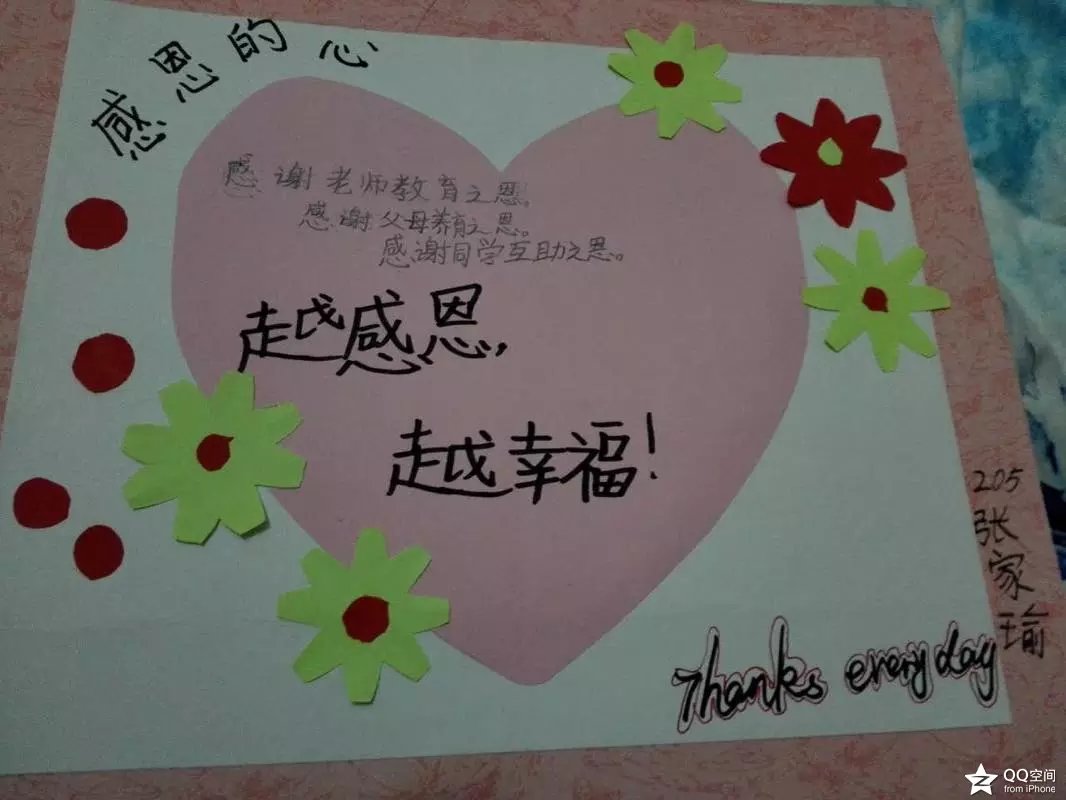 感恩的心
感谢老师教育之恩。
感谢父母养育之恩。
感谢同学互助之恩。
越感恩，
越幸福！
205
张家瑜
Thanks every day
QQ空间
from iPhone